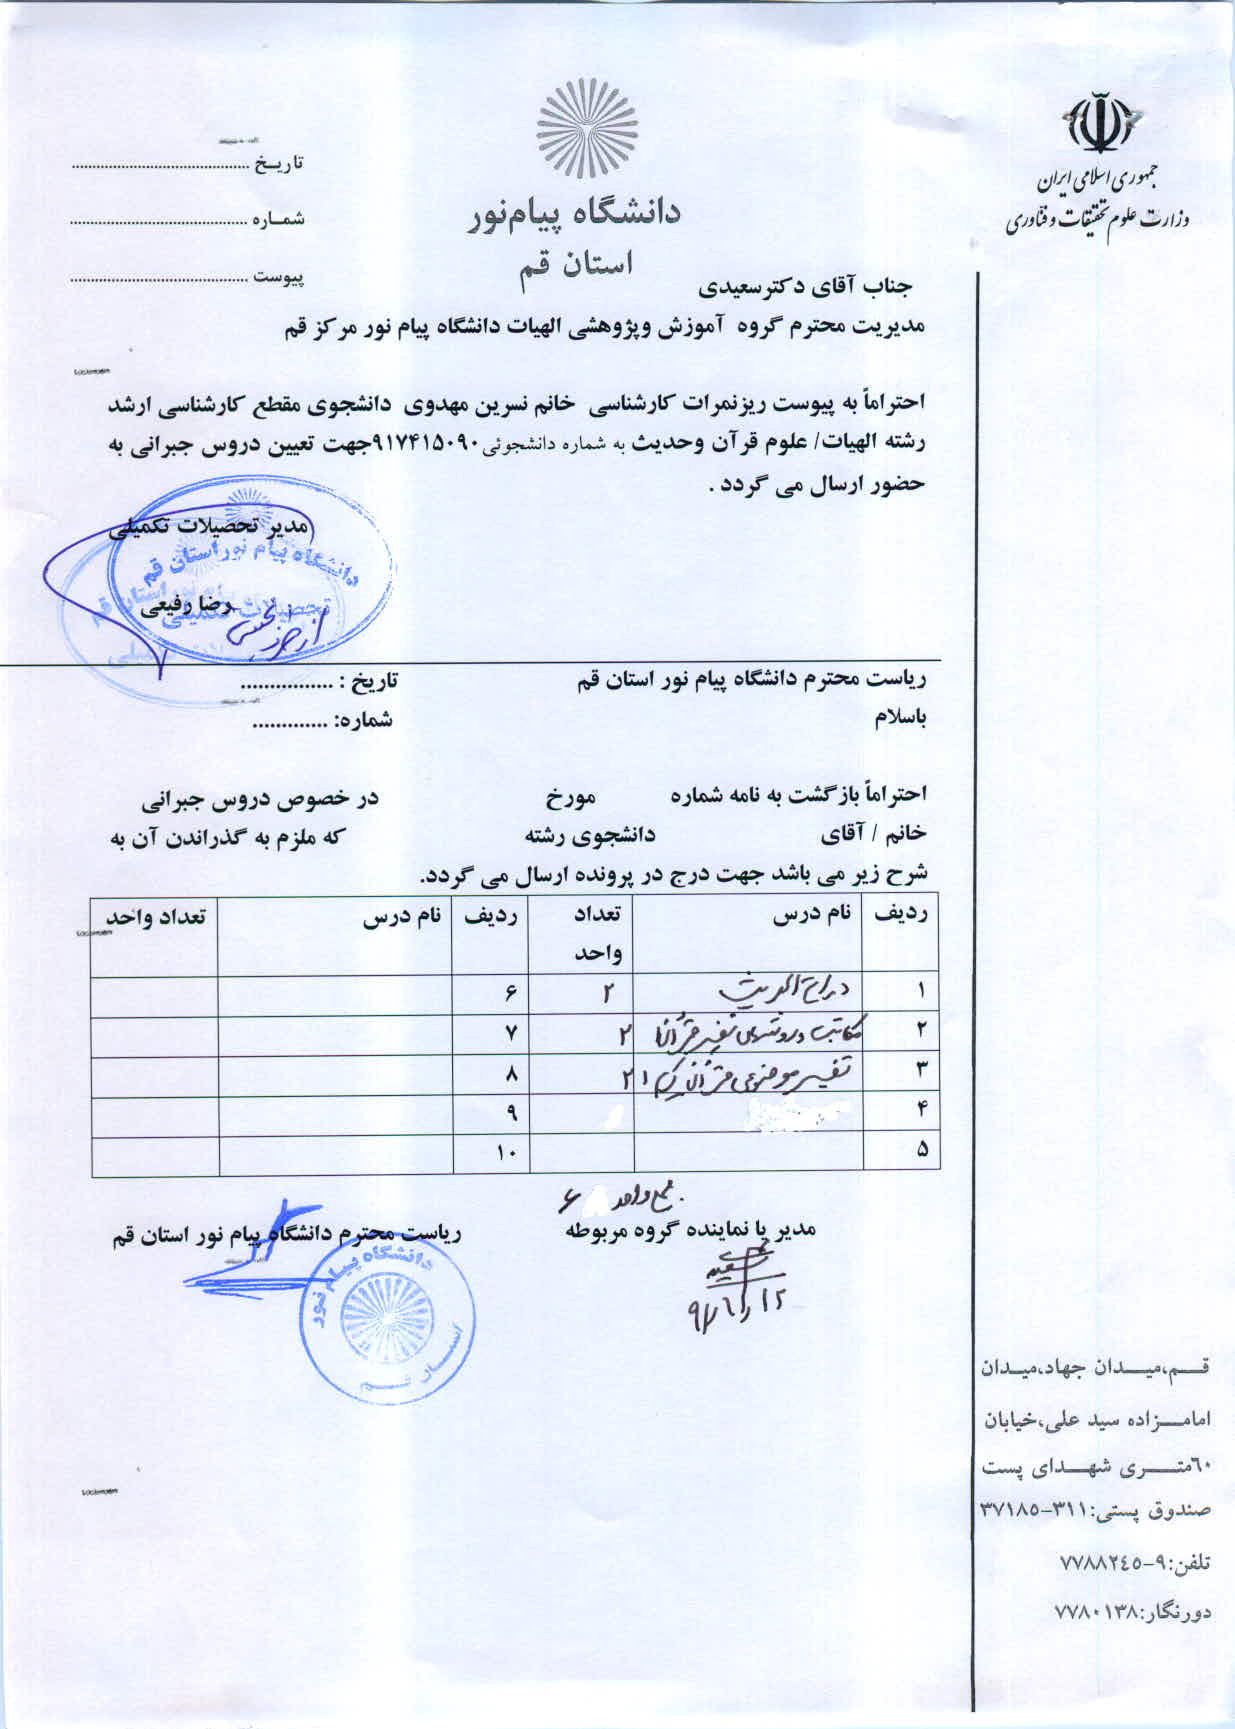 جمهوری اسلامی ایران
وزارت علوم تحقیقات و فناوری
دانشگاه پیام‌نور
استان قم
تاریخ ........................................
شماره ........................................
پیوست ........................................
جناب آقای دکترسعیدی
مدیریت محترم گروه آموزش وپژوهشی الهیات دانشگاه پیام نور مرکز قم
احتراماً به پیوست ریزنمرات کارشناسی خانم نسرین مهدوی دانشجوی مقطع کارشناسی ارشد
رشته الهیات/ علوم قرآن وحدیث به شماره دانشجوئی ۹۱۷۴۱۵۰۹۰جهت تعیین دروس جبرانی به
حضور ارسال می گردد .
مدیر تحصیلات تکمیلی
دانشگاه پیام نور استان قم
رضا رفیعی
تحصیلات تکمیلی
ریاست محترم دانشگاه پیام نور استان قم تاریخ : ................
باسلام شماره: .............
احتراماً بازگشت به نامه شماره مورخ در خصوص دروس جبرانی
خانم / آقای دانشجوی رشته که ملزم به گذراندن آن به
شرح زیر می باشد جهت درج در پرونده ارسال می گردد.
ردیف نام درس تعداد واحد ردیف نام درس تعداد واحد
۱ درایة الحدیث ۲ ۶
۲ مکاتب و روشهای تفسیر قرآن ۲ ۷
۳ تفسیر موضوعی قرآن کریم ۱ ۲ ۸
۴ ۹
۵ ۱۰
جمع واحد ۶
مدیر یا نماینده گروه مربوطه ریاست محترم دانشگاه پیام نور استان قم
دانشگاه پیام نور
استان قم
قم،میدان جهاد،میدان
امامزاده سید علی،خیابان
۶۰متری شهدای پست
صندوق پستی:۳۱۱-۳۷۱۸۵
تلفن:۹-۷۷۸۸۲٤٥
دورنگار:۷۷۸۰۱۳۸